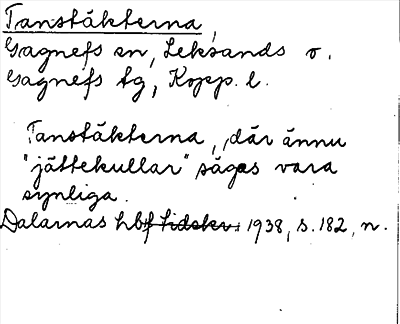 Tanstäkterna,
Gagnefs sn, Leksands o.
Gagnefs tg, Kopp. l.
Tanstäkterna, där ännu
"jättekullar" säges vara
synliga.
Dalarnas hbf tidskr. 1938, s. 182, n.